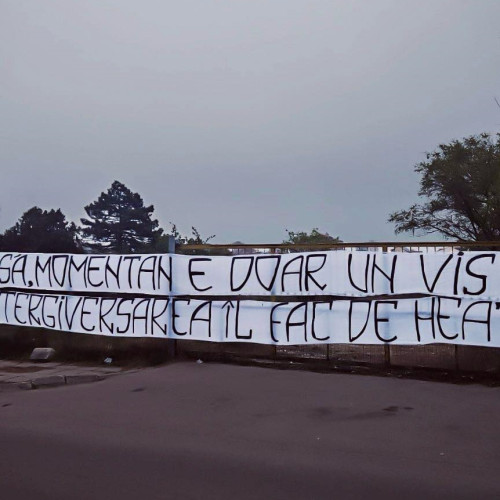 GA, MOMENTAN E DOAR UN VIS
TERGIVERSAREA ÎL FAC DE HEA